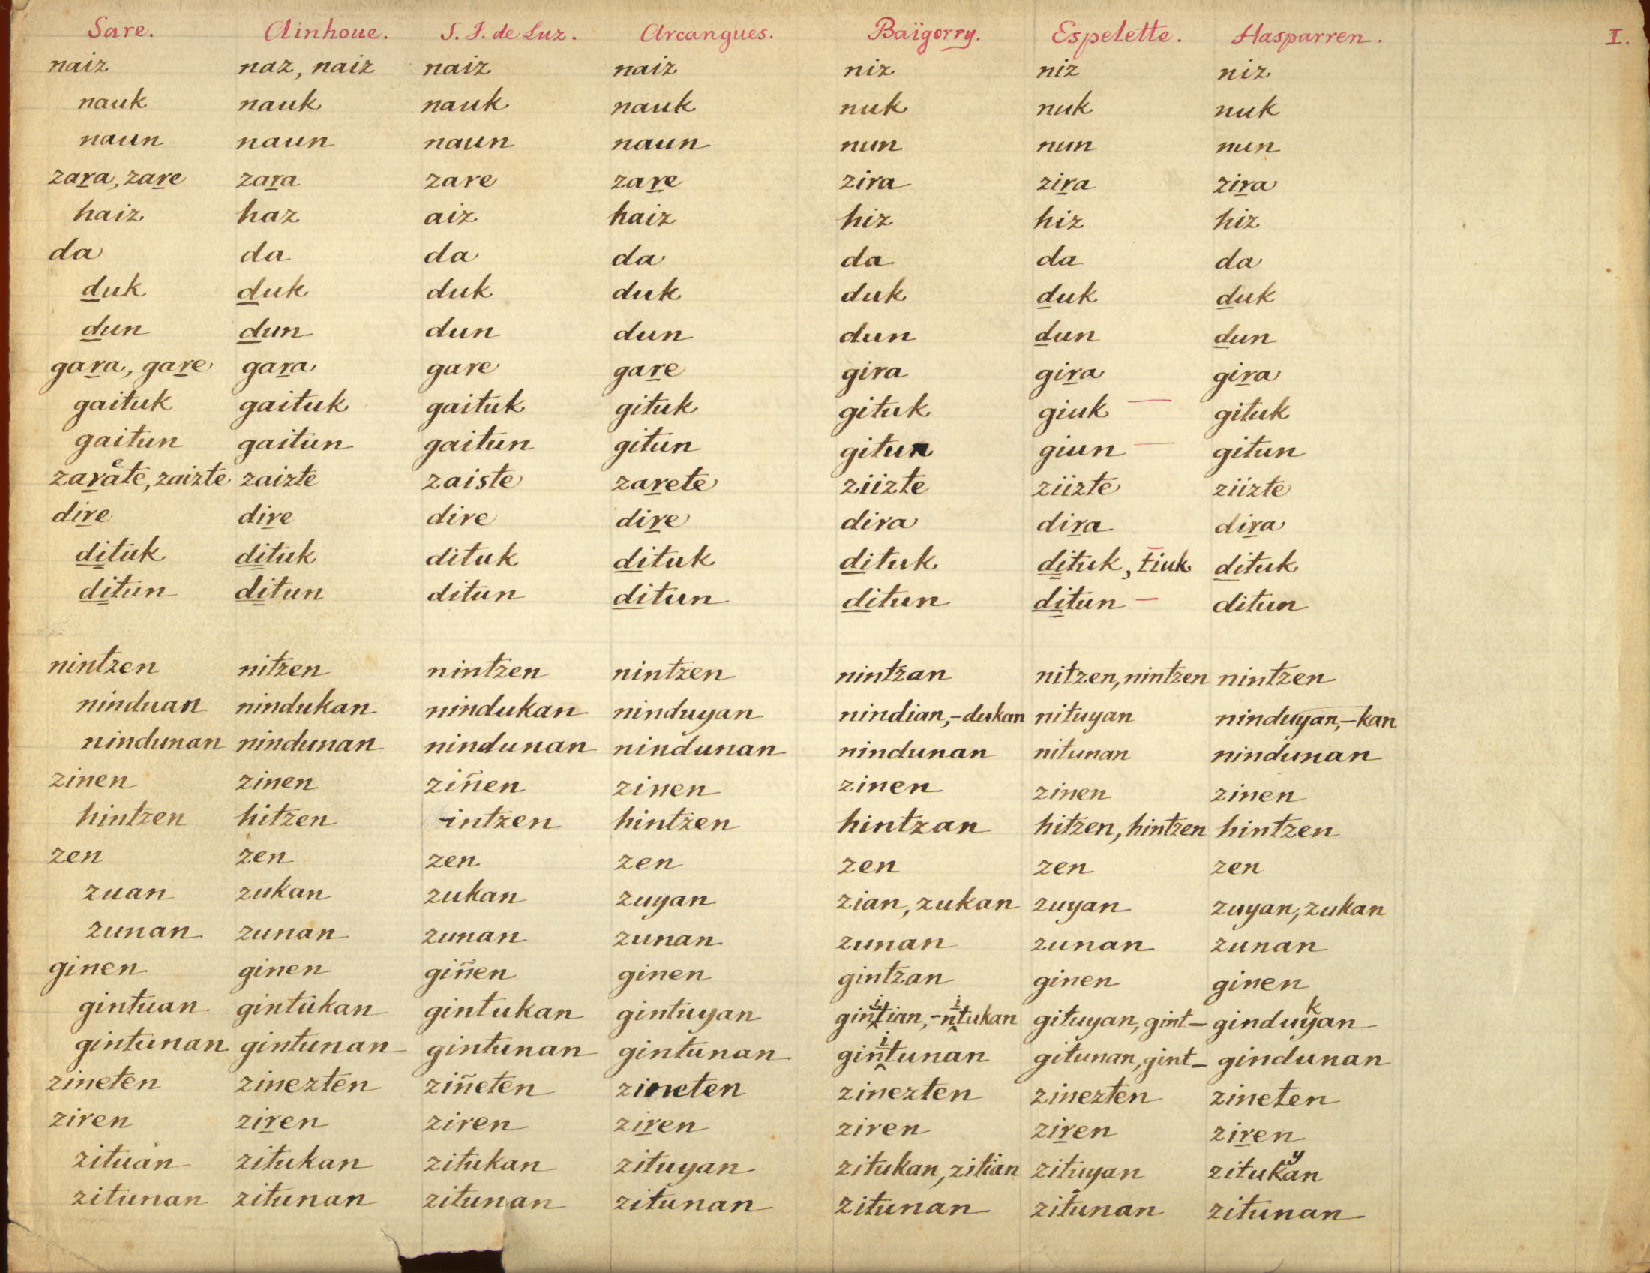 Sare. Ainhoue. S. J. de Luz. Arcangues. Baïgorry. Espelette. Hasparren. I.
naiz naz, naiz naiz naiz niz niz niz
nauk nauk nauk nauk nuk nuk nuk
naun naun naun naun nun nun nun
zara, zare zara zare zare zira zira zira
haiz haz aiz haiz hiz hiz hiz
da da da da da da da
duk duk duk duk duk duk duk
dun dun dun dun dun dun dun
gara, gare gara gare gare gira gira gira
gaituk gaituk gaituk gituk gituk giuk — gituk
gaitun gaitun gaitun gitun gitun giun — gitun
zarate, zaizte zaizte zaiste zarete ziizte ziizte ziizte
dire dire dire dire dira dira dira
dituk dituk dituk dituk dituk dituk, tiuk dituk
ditun ditun ditun ditun ditun ditun — ditun
nintzen nitzen nintzen nintzen nintzan nitzen, nintzen nintzen
ninduan nindukan nindukan ninduyan nindian, -dukan nituyan ninduyan, -kan
nindunan nindunan nindunan nindunan nindunan nitunan nindunan
zinen zinen ziñen zinen zinen zinen zinen
hintzen hitzen -intzen hintzen hintzan hitzen, hintzen hintzen
zen zen zen zen zen zen zen
zuan zukan zukan zuyan zian, zukan zuyan zuyan, zukan
zunan zunan zunan zunan zunan zunan zunan
ginen ginen giñen ginen gintzan ginen ginen
gintuan gintukan gintukan gintuyan gintian, -ntukan gituyan, gint- ginduyan
gintunan gintunan gintunan gintunan gintunan gitunan, gint- gindunan
zineten zinezten ziñeten zineten zinezten zinezten zineten
ziren ziren ziren ziren ziren ziren ziren
zituan zitukan zitukan zituyan zitukan, zitian zituyan zitukan
zitunan zitunan zitunan zitunan zitunan zitunan zitunan